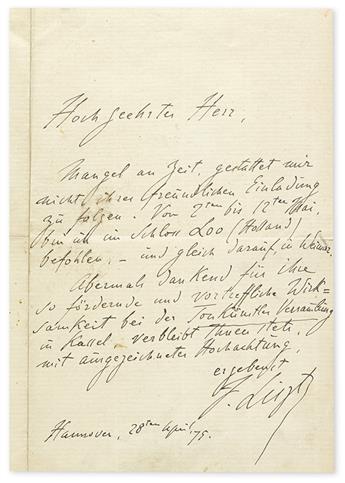 Hochgeehrter Herr,
Mangel an Zeit, gestattet mir
nicht ihrer freundlichen Einladung
zu folgen. Vom 2ten bis 12ten Mai,
bin ich im Schloss Loo (Holland)
befohlen, – und gleich darauf, in Weimar.
Abermals dankend für ihre
so fördernde und vortreffliche Wirk=
samkeit bei der Tonkünstler Versamlung
in Kassel, verbleibt Ihnen stets,
mit ausgezeichneter Hochachtung,
ergebenst
F. Liszt
Hannover, 28ten April, 75.